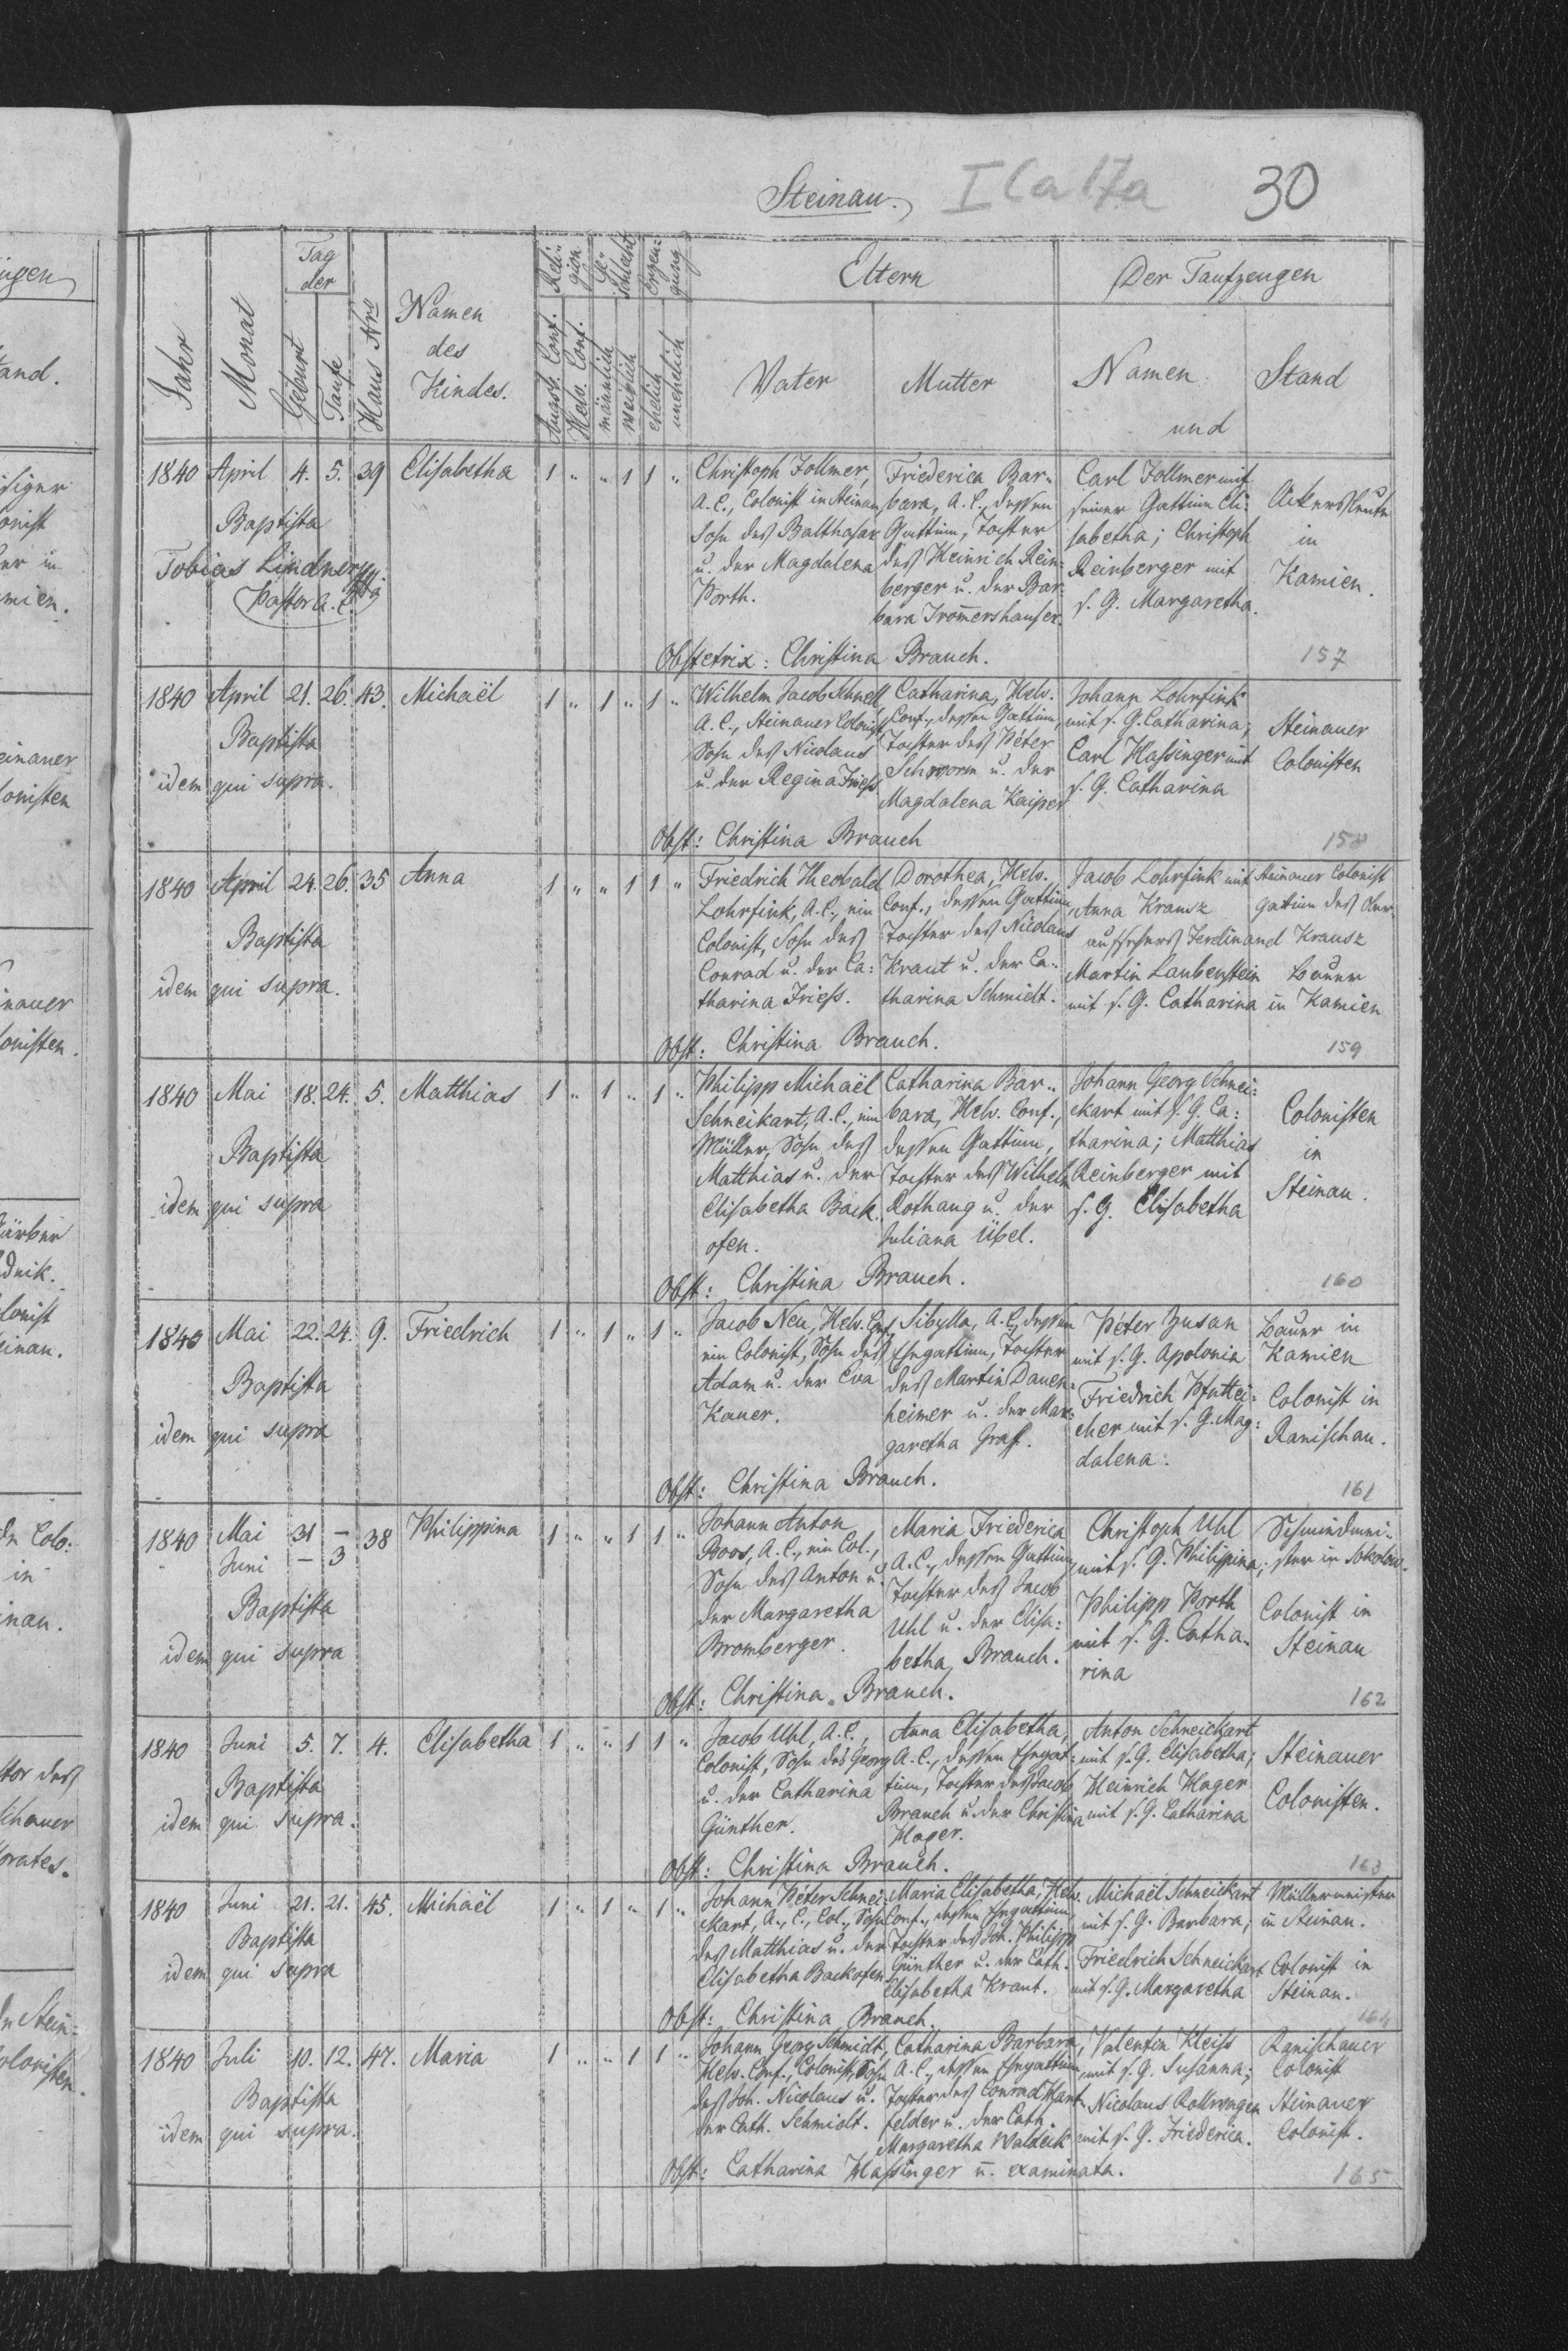 Steinau. I C a 17a 30
Jahr
Monat
Tag der
Geburt
Taufe
Haus Nro
Namen
des
Kindes.
Religion
Augsb. Conf.
Helv. Conf.
Geschlecht
männlich
weiblich
Erzeugung
ehelich
unehelich
Eltern
Vater
Mutter
Der Taufzeugen
Namen
und
Stand
1840 April 4. 5. 39 Elisabetha 1 " " 1 1 "
Baptista
Tobias Lindner
Pastor A. C.
Christoph Follmer,
A. C., Colonist in Steinau,
Sohn des Balthasar
u. der Magdalena
Porth.
Friederica Bar-
bara, A. C., dessen
Gattinn, Tochter
des Heinrich Rein-
berger u. der Bar-
bara Trom̄ershauser.
Carl Follmer mit
seiner Gattinn Eli-
sabetha; Christoph
Reinberger mit
s. G. Margaretha.
Ackersleute
in
Kamien.
Obstetrix: Christina Brauch.
157
1840 April 21. 26. 43. Michaël 1 " 1 " 1 "
Baptista
idem qui supra.
Wilhelm Jacob Schnell
A. C., Steinauer Colonist,
Sohn des Nicolaus
u. der Regina Friess
Catharina, Helv.
Conf., dessen Gattinn,
Tochter des Péter
Schworm u. der
Magdalena Kaiper
Johann Lohrfink
mit s. G. Catharina;
Carl Hassinger mit
s. G. Catharina
Steinauer
Colonisten
Obst: Christina Brauch
158
1840 April 24. 26. 35 Anna 1 " " 1 1 "
Baptista
idem qui supra.
Friedrich Theobald
Lohrfink, A. C., ein
Colonist, Sohn des
Conrad u. der Ca-
tharina Friess.
Dorothea, Helv.
Conf., dessen Gattinn,
Tochter des Nicolaus
Kraut u. der Ca-
tharina Schmidt.
Jacob Lohrfink mit Steinauer Colonist
Anna Krausz Gattinn des Ober-
aufsehers Ferdinand Krausz
Martin Laubenstein Bauer
mit s. G. Catharina in Kamien
Obst: Christina Brauch.
159
1840 Mai 18. 24. 5. Matthias 1 " 1 " 1 "
Baptista
idem qui supra
Philipp Michaël
Schneikart, A. C., ein
Müller, Sohn des
Matthias u. der
Elisabetha Back-
ofen.
Catharina Bar-
bara, Helv. Conf.,
dessen Gattinn,
Tochter des Wilhelm
Rothaug u. der
Juliana Übel.
Johann Georg Schnei-
ckart mit s. G. Ca-
tharina; Matthias
Reinberger mit
s. G. Elisabetha
Colonisten
in
Steinau.
Obst: Christina Brauch.
160
1840 Mai 22. 24. 9. Friedrich 1 " 1 " 1 "
Baptista
idem qui supra
Jacob Neu, Helv. Conf.
ein Colonist, Sohn des
Adam u. der Eva
Kauer.
Sibylla, A. C., dessen
Ehegattinn, Tochter
des Martin Dauen-
heimer u. der Mar-
garetha Graf.
Péter Busan
mit s. G. Apolonia
Friedrich
mit s. G. Mag-
dalena.
Bauer in
Kamien
Colonist in
Ranischau.
Obst: Christina Brauch.
161
1840 Mai 31 – 38 Philippina 1 " " 1 1 "
Juni – 3
Baptista
idem qui supra
Johann Anton
Boos, A. C., ein Col.,
Sohn des Anton u.
der Margaretha
Bromberger.
Maria Friederica
A. C., dessen Gattinn,
Tochter des Jacob
Uhl u. der Elisa-
betha Brauch.
Christoph Uhl
mit s. G. Philippina;
Philipp Porth
mit s. G. Catha-
rina
Schmiedmei-
ster in Sokolow.
Colonist in
Steinau
Obst: Christina Brauch.
162
1840 Juni 5. 7. 4. Elisabetha 1 " " 1 1 "
Baptista
idem qui supra.
Jacob Uhl, A. C.,
Colonist, Sohn des Georg
u. der Catharina
Günther.
Anna Elisabetha,
A. C., dessen Ehegat-
tinn, Tochter des Jacob
Brauch u. der Christina
Hager.
Anton Schneickart
mit s. G. Elisabetha;
Heinrich Hager
mit s. G. Catharina
Steinauer
Colonisten.
Obst: Christina Brauch.
163
1840 Juni 21. 21. 45. Michaël 1 " 1 " 1 "
Baptista
idem qui supra
Johann Péter Schnei-
kart, A. C., Col., Sohn
des Matthias u. der
Elisabetha Backofen
Maria Elisabetha, Helv.
Conf., dessen Ehegattinn,
Tochter des Joh. Philipp
Günther u. der Cath.
Elisabetha Kraut.
Michaël Schneickart
mit s. G. Barbara;
Friedrich Schneickart
mit s. G. Margaretha
Müllermeister
in Steinau.
Colonist in
Steinau.
Obst: Christina Brauch.
164
1840 Juli 10. 12. 47. Maria 1 " " 1 1 "
Baptista
idem qui supra.
Johann Georg Schmidt,
Helv. Conf., Colonist, Sohn
des Joh. Nicolaus u.
der Cath. Schmidt.
Catharina Barbara,
A. C., dessen Ehegattinn,
Tochter des Conrad Hart-
felder u. der Cath.
Margaretha Waldeck
Valentin Kleiss
mit s. G. Susanna;
Nicolaus Rollwagen
mit s. G. Friederica.
Ranischauer
Colonist
Steinauer
Colonist.
Obst: Catharina Hassinger n. examinata.
165